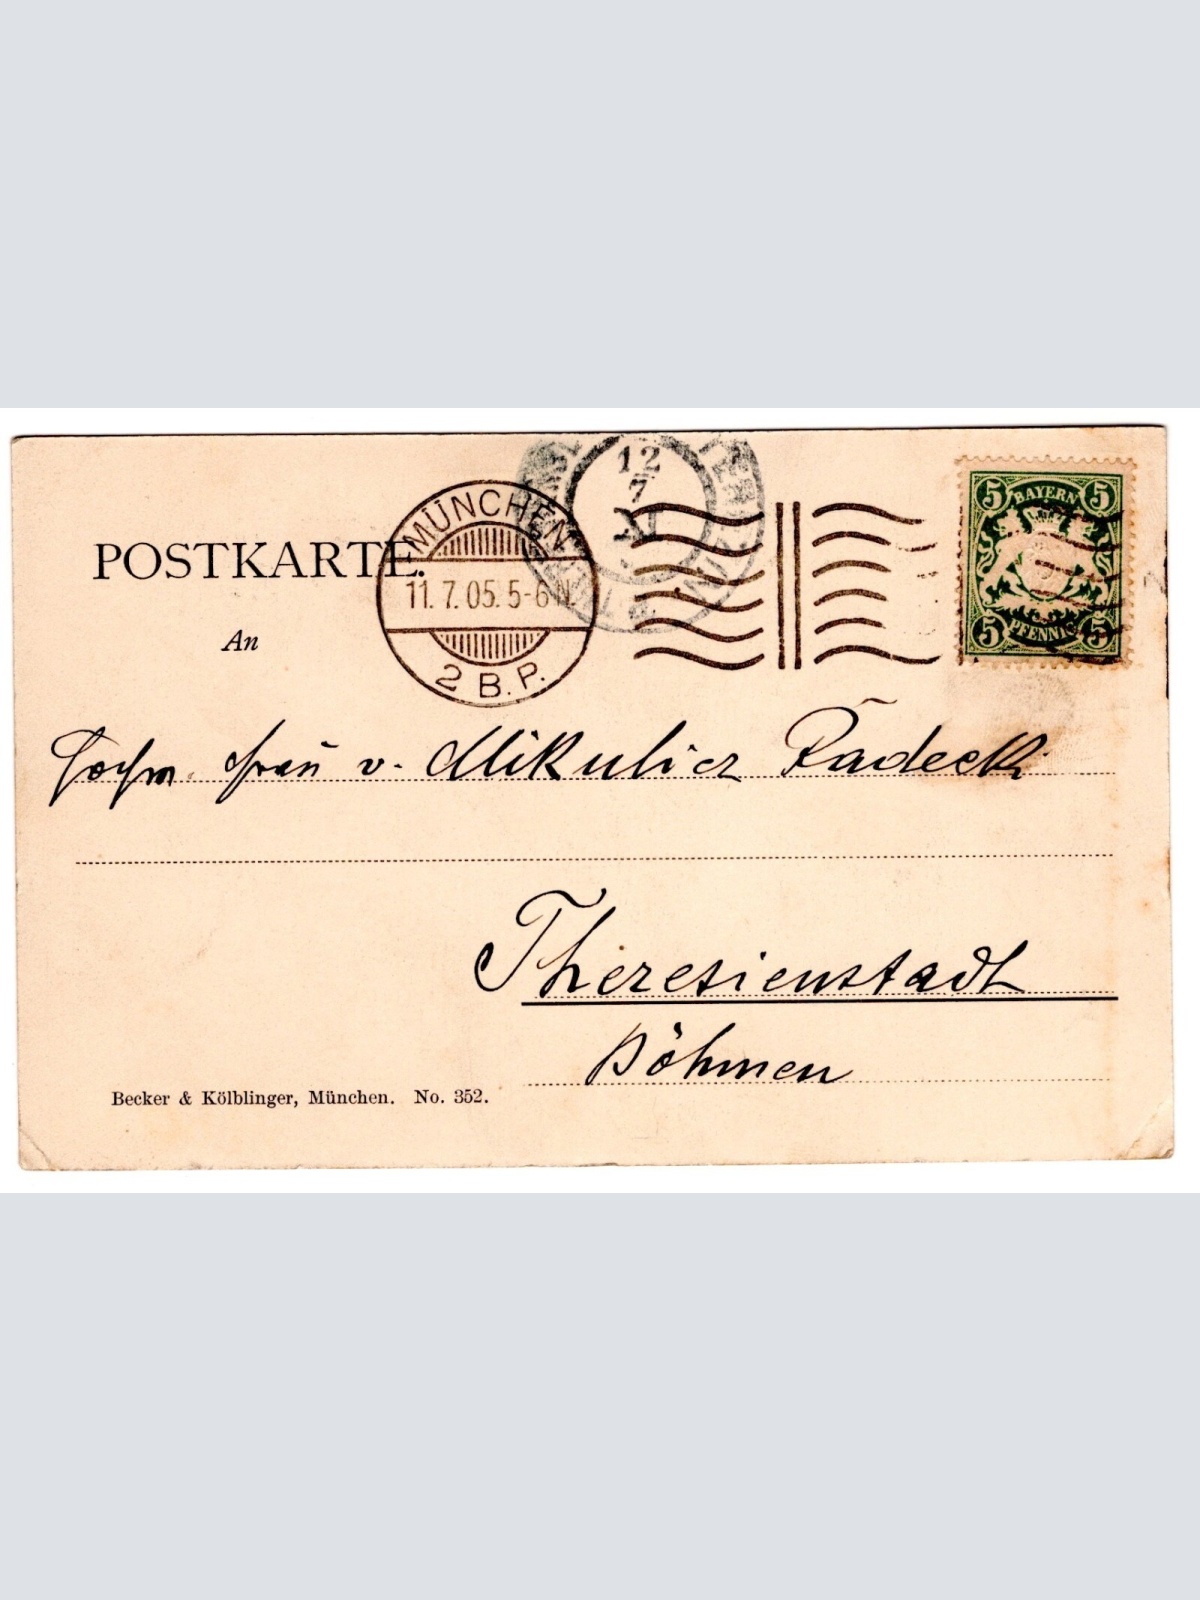 POSTKARTE.
An
MÜNCHEN
11. 7. 05. 5-6 N.
2 B. P.
12
7
BAYERN
5 5
5 5
PFENNIG
Frau v. Mikulicz Radecki
Theresienstadt
Böhmen
Becker & Kölblinger, München. No. 352.